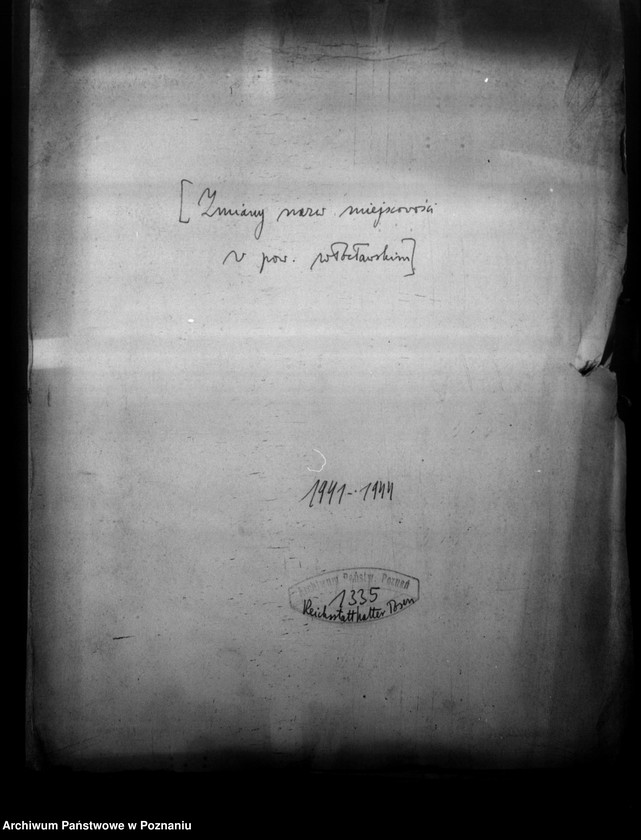 [Zmiany nazw miejscowości
w pow. włocławskim]
1941-1944
Archiwum Państw. Poznań
1335
Reichsstatthalter Posen
Archiwum Państwowe w Poznaniu